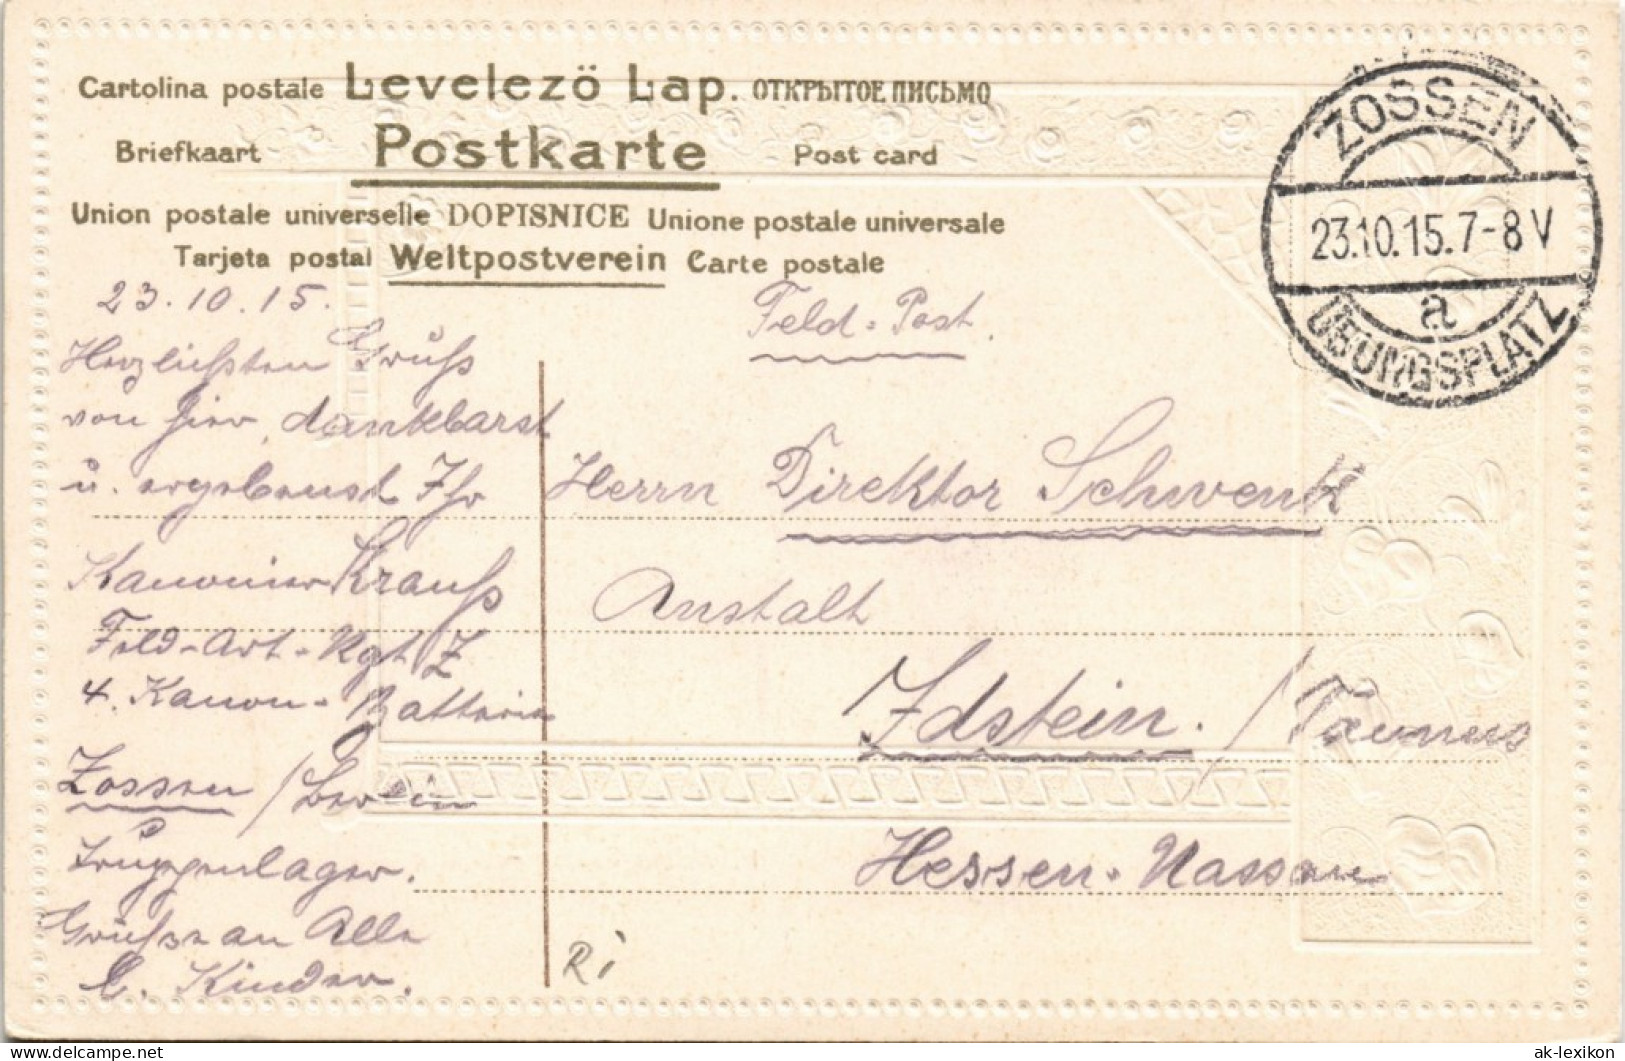 Cartolina postale Levelező Lap. ОТКРЫТОЕ ПИСЬМО
Briefkaart Postkarte Post card
Union postale universelle DOPISNICE Unione postale universale
Tarjeta postal Weltpostverein Carte postale
ZOSSEN
23.10.15.7-8V
a
ÜBUNGSPLATZ
23.10.15.
Herzlichsten Gruß
von hier, dankbarst
u. ergebenst Ihr
Kanonier Krauß
Feld-Art-Rgt Z
4. Kanon-Batterie
Zossen / Berlin
Truppenlager.
Grüsse an Alle
l. Kinder.
Feld-Post.
Herrn Direktor Schwenk
Anstalt
Idstein. / Taunus
Hessen-Nassau
Ri
ak-ansichtskarten.de
ak-lexikon